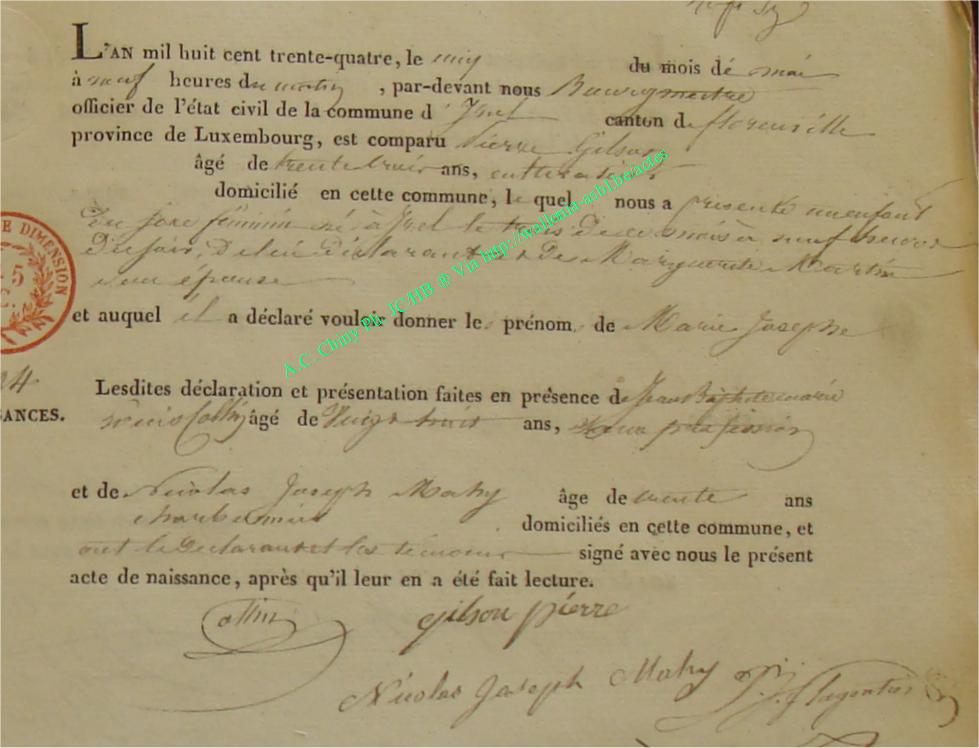 L'AN mil huit cent trente-quatre, le cinq du mois de mai
à neuf heures du matin, par-devant nous Bourgmestre
officier de l'état civil de la commune d'Izel canton de florenville
province de Luxembourg, est comparu Pierre Gilson
âgé de trente trois ans, cultivateur
domicilié en cette commune, le quel nous a présenté un enfant
du sexe féminin né à Izel le trois de ce mois à neuf heures
du soir, de lui déclarant et de Marguerite Martin
son épouse
et auquel il a déclaré vouloir donner le prénom de Marie Josephe
A.C. Chiny Ph. JCHB ® Via http://wallonia-asbl.be/actes
E DIMENSION
24
Lesdites déclaration et présentation faites en présence de Jean Baptiste marie
Collin âgé de Vingt trois ans, sans profession
SANCES.
et de Nicolas Joseph Mahy âge de trente ans
domiciliés en cette commune, et
ont le déclarant et les témoins signé avec nous le présent
acte de naissance, après qu'il leur en a été fait lecture.
Collin gilson pierre
Nicolas Joseph Mahy